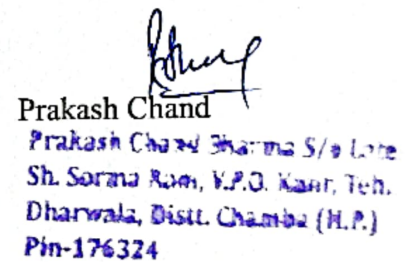 Prakash Chand
Prakash Chand Sharma S/o Late
Sh. Sorma Ram, V.P.O. Kanr, Teh.
Dharwala, Distt. Chamba (H.P.)
Pin-176324